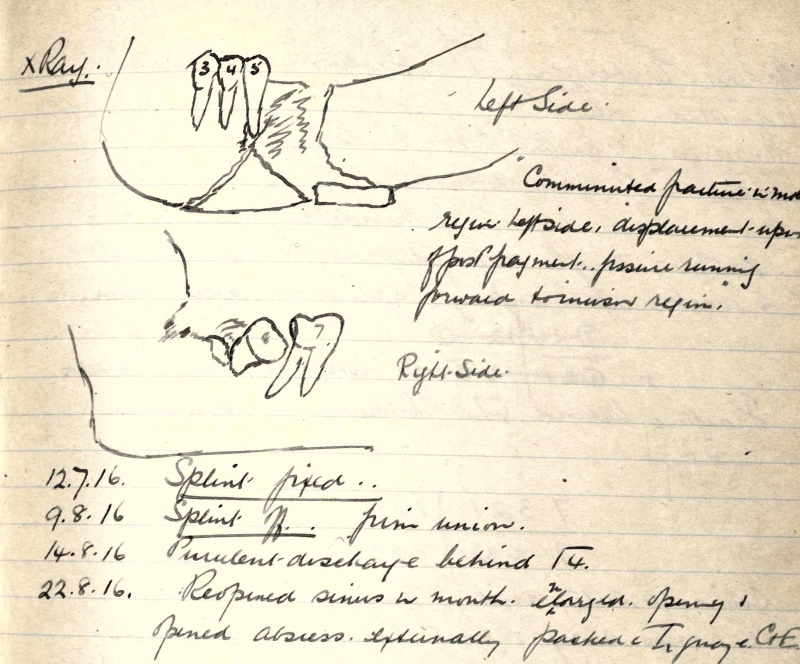 X Ray.
3 4 5
Left Side.
"Comminuted fracture in mol
region left side, displacement upw
of post fragment.. fissure running
forward to incisor region."
7
Right Side.
12.7.16. Splint fixed ..
9.8.16 Splint off.. firm union.
14.8.16 Purulent discharge behind 4.
22.8.16. Reopened sinus in mouth. enlarged opening &
opened abscess externally packed c